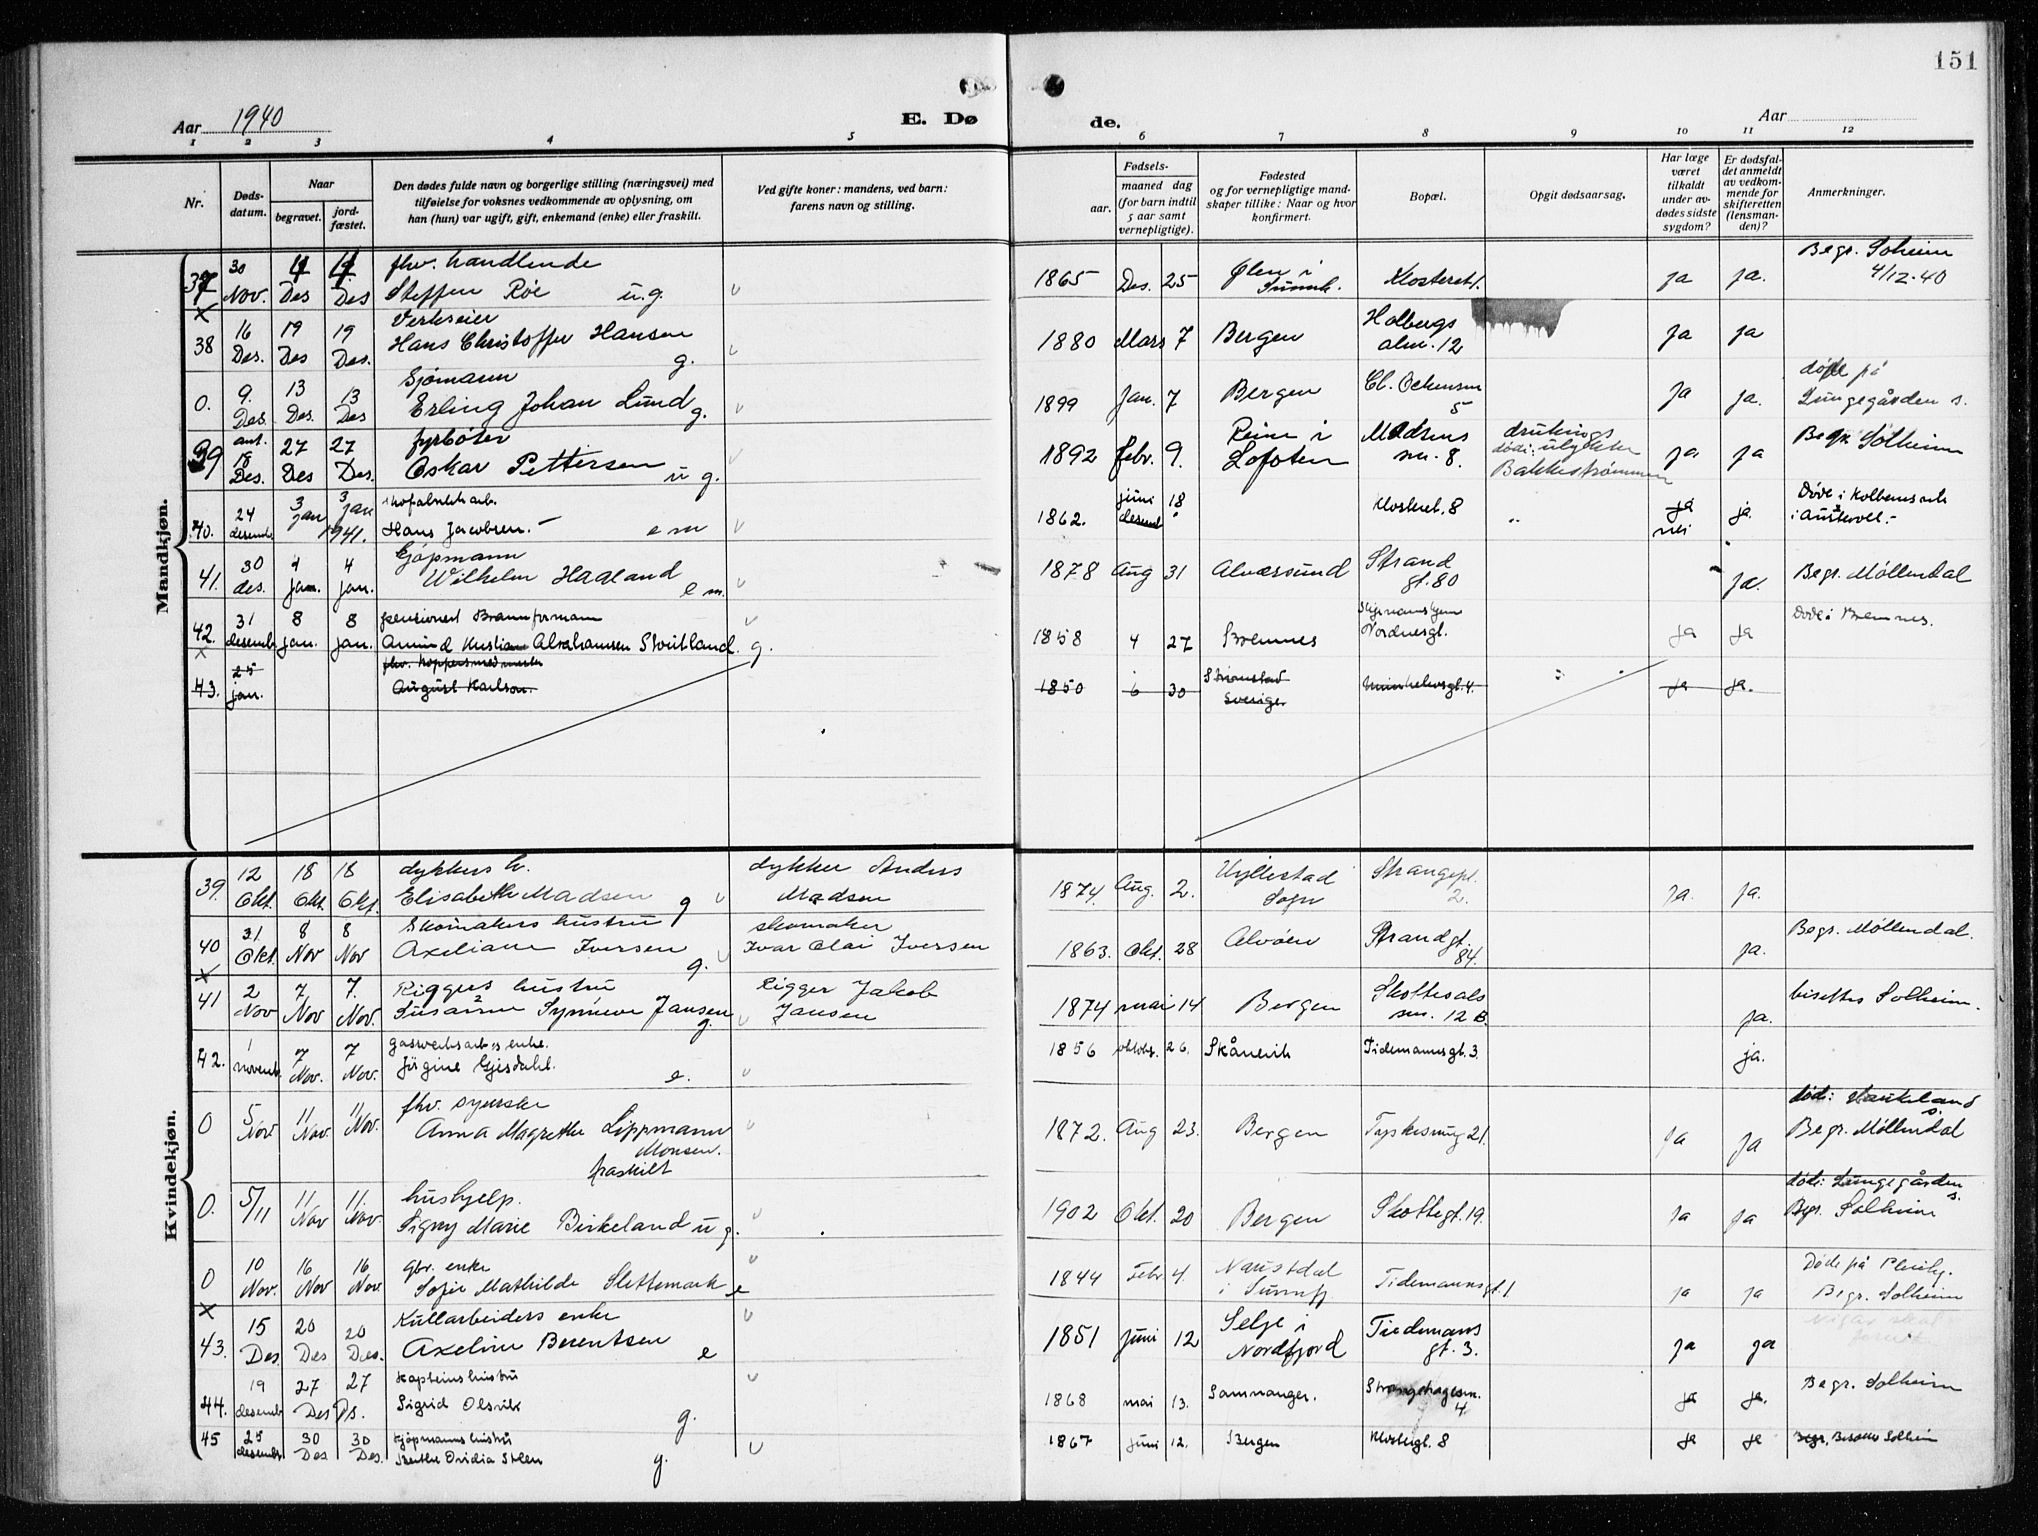 151
Aar 1940
E. Dø
de.
Aar
1 2 3 4 5 6 7 8 9 10 11 12
Nr.
Døds-
datum.
Naar
begravet.
jord-
fæstet.
Den dødes fulde navn og borgerlige stilling (næringsvei) med
tilføielse for voksnes vedkommende av oplysning, om
han (hun) var ugift, gift, enkemand (enke) eller fraskilt.
Ved gifte koner: mandens, ved barn:
farens navn og stilling.
Fødsels-
aar.
maaned dag
(for barn indtil
5 aar samt
vernepligtige).
Fødested
og for vernepligtige mand-
skaper tillike: Naar og hvor
konfirmert.
Bopæl.
Opgit dødsaarsag.
Har læge
været
tilkaldt
under av-
dødes sidste
sygdom?
Er dødsfal-
det anmeldt
av vedkom-
mende for
skifteretten
(lensman-
den)?
Anmerkninger.
Mandkjøn.
37 30 4 4 fhv. handlende Begr. Solheim
Nov. Des Des Steffen Röe u.g. 1865 Des. 25 Ølen i Sunnh. Klosteret 1. ja ja. 4/12-40
x
38 16 19 19 Verkseier Holbergs
Des. Des Des. Hans Christoffer Hansen g. 1880 Mars 7 Bergen alm. 12 ja ja
0. 9. 13 13 Sjømann døde på
Des. Des. Des Erling Johan Lund g. 1899 Jan. 7 Bergen 5 ja ja. Lungegården s.
39 ant. 27 27 fyrbøter Reine i Madsens druknings
18 Des. Des Des. Oskar Pettersen u g. 1892 febr. 9. Lofoten sm. 8. dödsulykke ja ja Begr. Solheim
Bakkestrømmen
40. 24 3 3 skofabrikkarb. juni 18 ja Döde i Kolbeinsvik
desemb. Jan Jan 1941. Hans Jacobsen. - e m 1862. desemb Klosteret. 8 nei ja. i Austevoll. -
41. 30 4 4 Kjöpmann Strand
des. jan. jan. Wilhelm Haaland e m. 1878 Aug 31 Alværsund gt. 80 ja. Begr. Møllendal
42. 31 8 8 pensionert Brannformann Döde i Bremnes.
desemb. jan. jan. Amund Kristian Abrahamsen Svitland. g. 1858 4 27 Bremnes Nordnesgt. ja ja
x
43. 25 jan. August Karlson. 1850 6 30 Strömstad Sverige. gt. 4. ja ja.
Kvindekjøn.
39. 12 18 18 dykkers h. dykker Anders Hyllestad Strangepl.
Okt. Okt. Okt. Elisabeth Madsen g Madsen 1874. Aug. 2. Sogn 2. ja. ja.
40 31 8 8 Skomakers hustru skomaker Begr. Møllendal.
Okt. Nov Nov Axeliane Iversen g. Ivar Olai Iversen 1863. Okt. 28 Alvöen Strandgt. 84. ja.
x
41 2 7 7. Riggers hustru Rigger Jakob bisettes Solheim.
Nov Nov Nov. Susanne Synnöve Jansen g. Jansen 1874 mai 14 Bergen Skottesals sm. 12 B. ja.
42. 1 7 7 gasverksarb.s enke.
novemb. Nov. Nov. Jörgine Gjesdahl. e. 1856 oktobr. 26. Skånevik Tidemannsgt. 3. ja.
0 5 11 11 fhv. syerske död: Haukeland s.
Nov Nov. Nov. Anna Magrethe Lippmann 1872. Aug 23. Bergen Tyskesmug 21. ja ja Begr. Møllendal
Monsen.
fraskilt
0. 5/11 11 11. hushjelp. död: Lungegården s.
Nov Nov. Signy Marie Birkeland u g. 1902 Okt. 20 Bergen Skottegt. 19. ja ja Begr. Solheim
0 10 16 16 gbr. enke Naustdal Døde på Pleihj.
Nov. Nov Nov. Sofie Mathilde Slettemark e 1844 Febr. 4. i Sunnfj Tidemannsgt. 1 ja ja Begr. Solheim
x
43. 15 20 20 Kullarbeiders enke Selje i Tiedemans
Des. Des Des. Axeline Berentsen e 1851 Juni 12 Nordfjord gt. 3. ja ja
44. 19 27 27 Kapteins hustru Begr. Solheim
desemb. Des Ds. Sigrid Olsvik g. 1868 mai 13. Samnanger. Strangehagen. 4. ja ja.
45 25 30 30 Kjöpmanns hustru
desemb. Des Des. Berthe Ovidia Stlen g. 1867 juni 12. Bergen Klostergt. 8 ja ja Begr. Bisattes Solheim